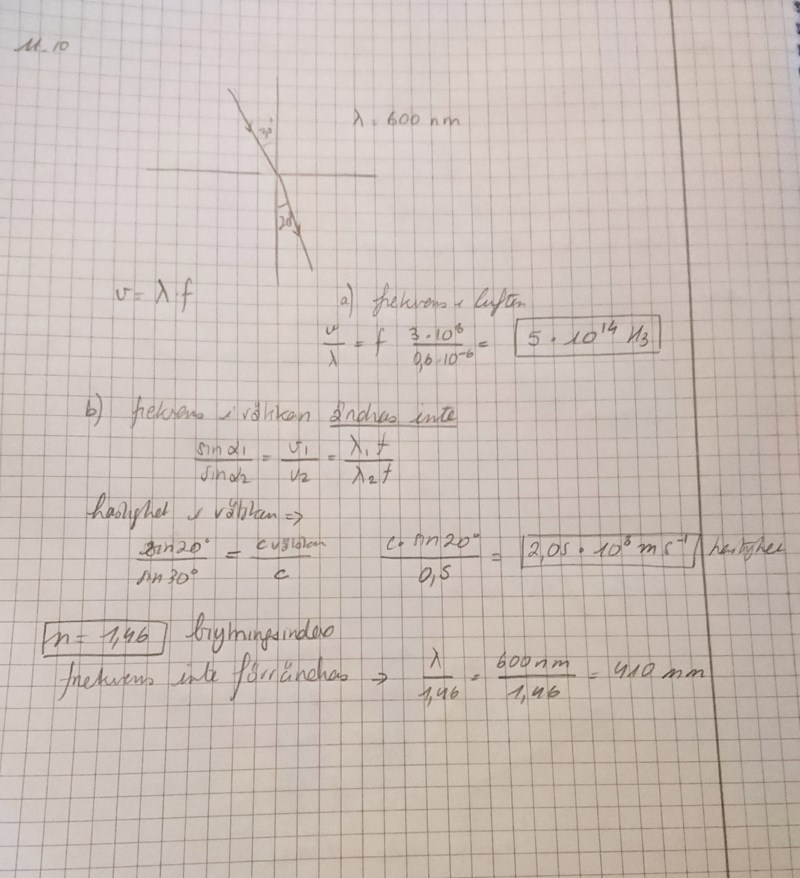 11.10
30°
λ = 600 nm
20°
v = λ·f
a) frekvens i luften
v/λ = f 3·10⁸/0,6·10⁻⁶ = 5·10¹⁴ Hz
b) frekvens i vätskan ändras inte
sin α1/sin α2 = v1/v2 = λ1 f/λ2 f
hastighet i vätskan =>
sin20°/sin30° = c vätskan/c c·sin20°/0,5 = 2,05·10⁸ m s⁻¹ hastighet
n = 1,46 brytningsindex
frekvens inte förrändras → λ/1,46 = 600nm/1,46 = 410 nm